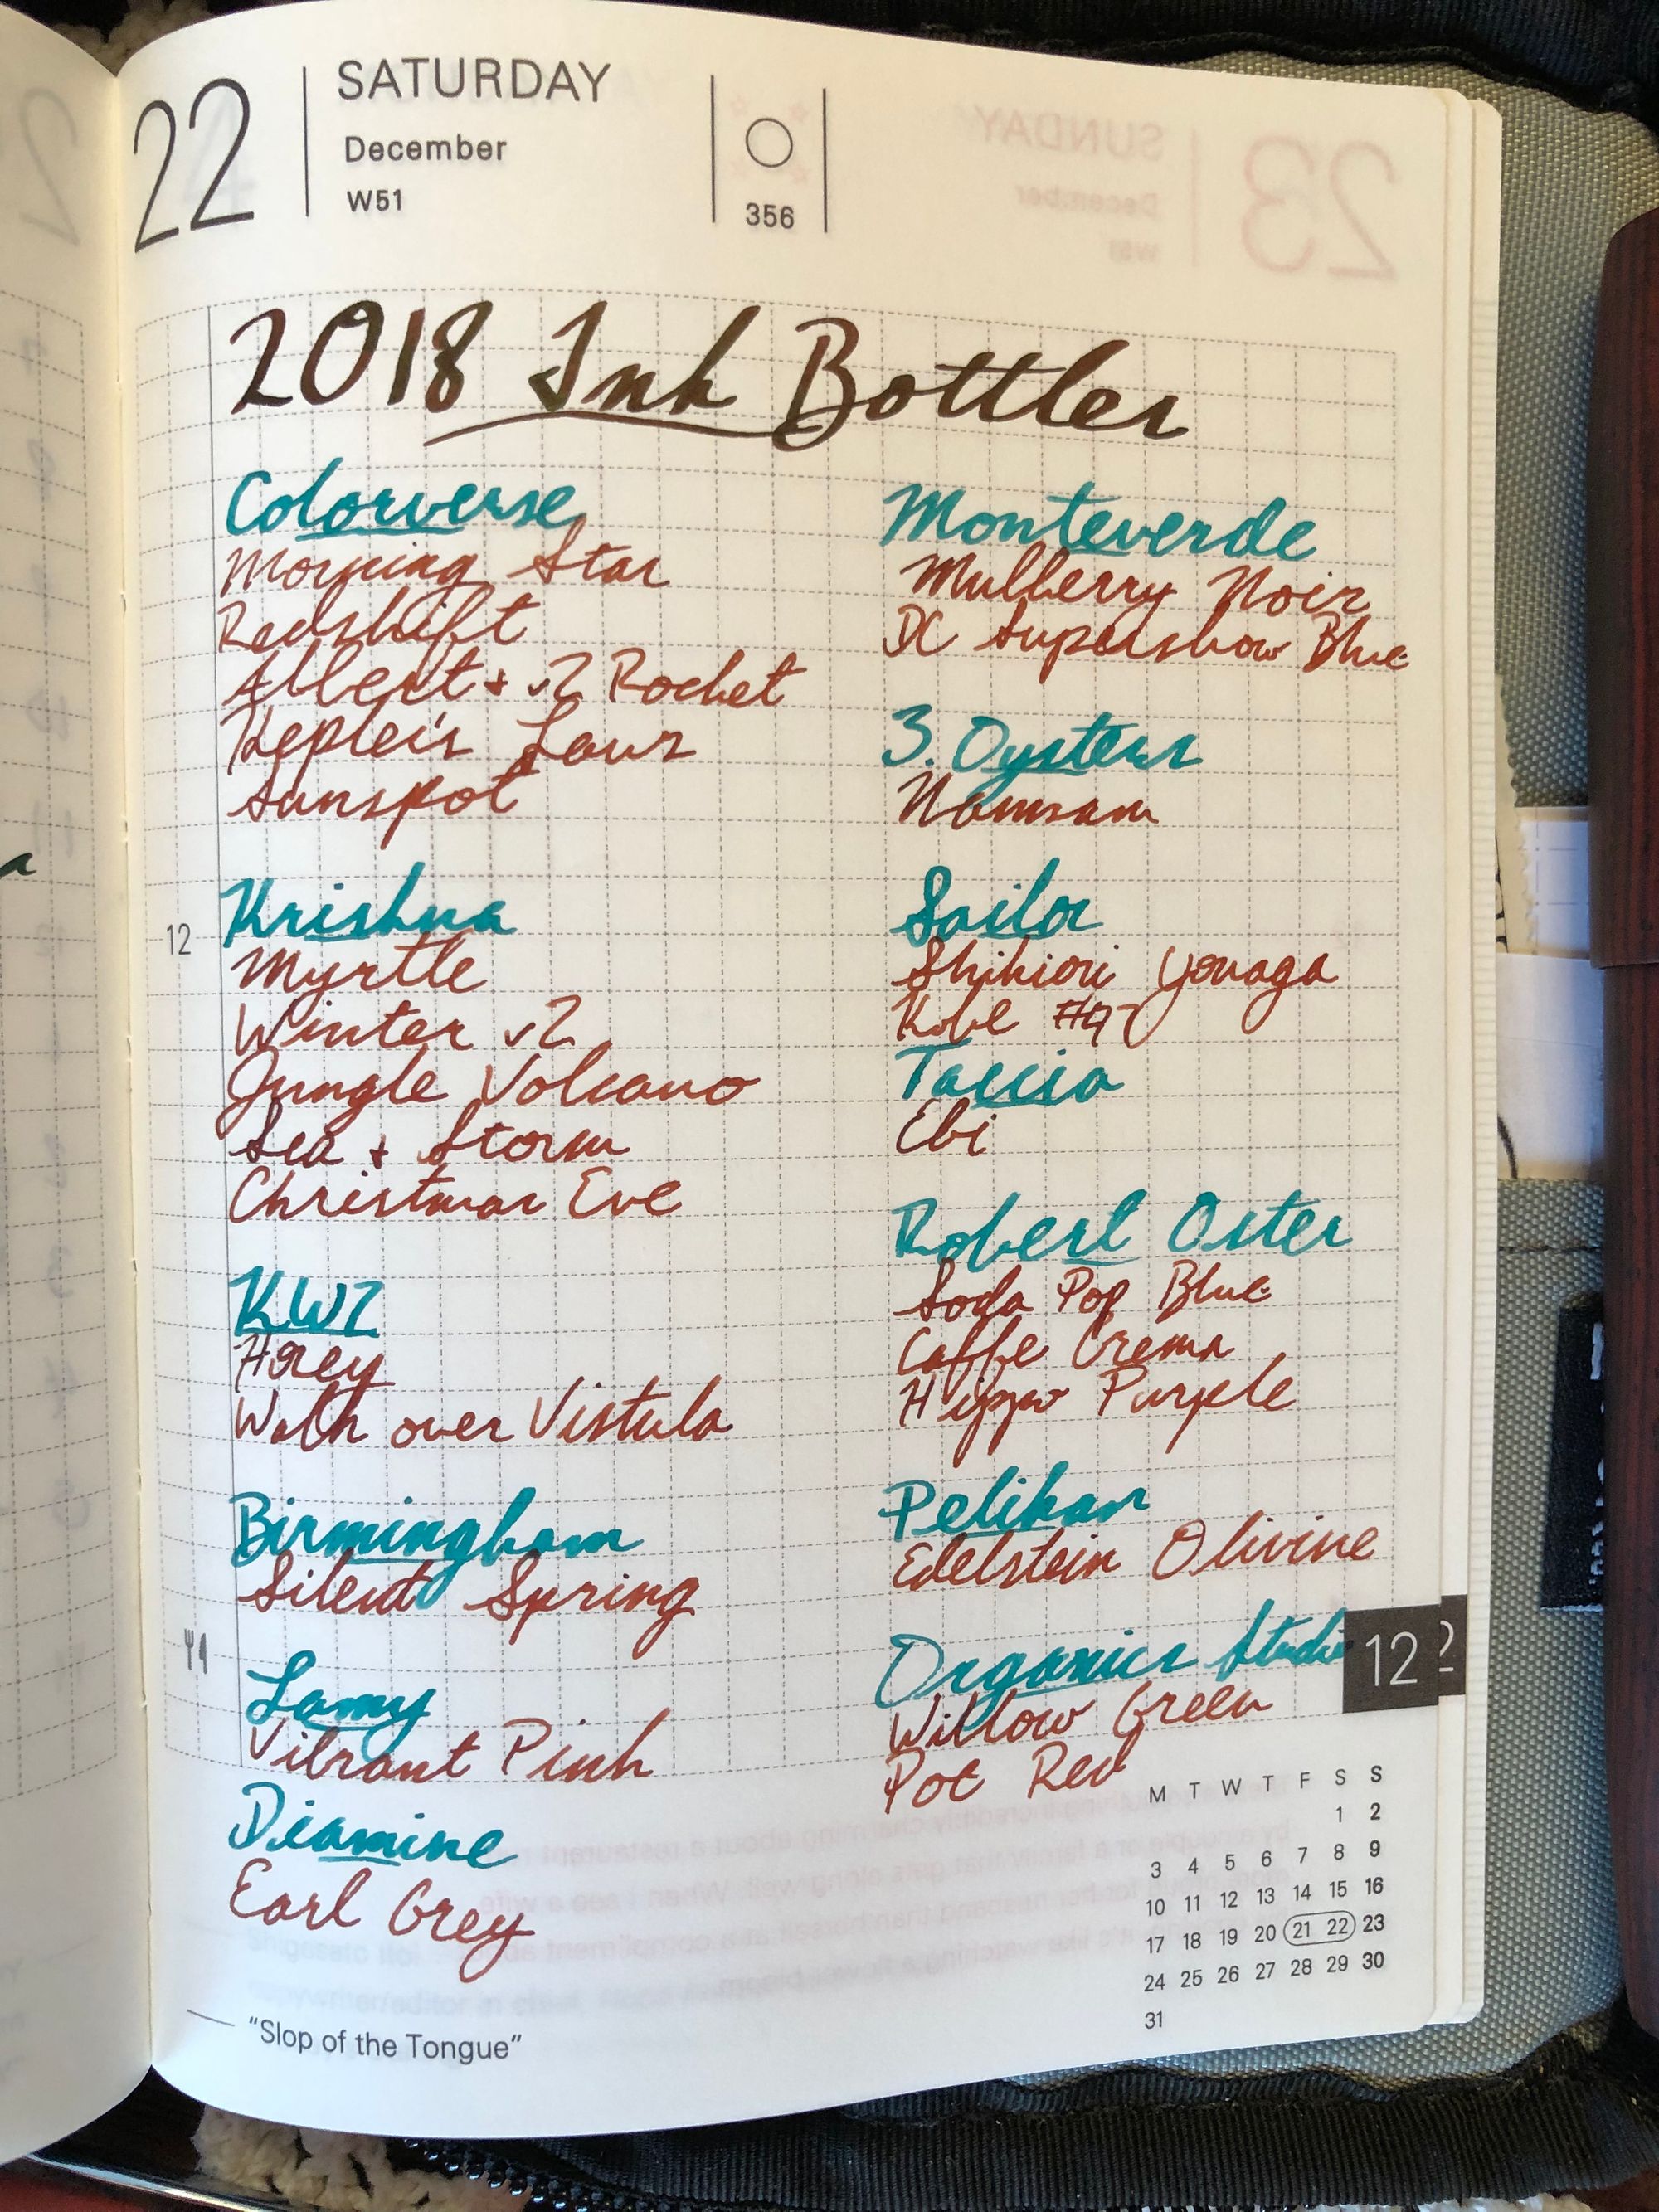 22
SATURDAY
December
W51
356
2018 Ink Bottles
Colorverse
Morning Star
Redshift
Albert + v2 Rocket
Kepler's Laws
Sunspot
12
Krishna
Myrtle
Winter v2
Jungle Volcano
Sea + Storm
Christmas Eve
KWZ
Grey
Walk over Vistula
Birmingham
Silent Spring
Lamy
Vibrant Pink
Diamine
Earl Grey
Monteverde
Mulberry Noir
DC Supershow Blue
3. Oysters
Namsam
Sailor
Shikiori Yonaga
Kobe #47
Taccia
Ebi
Robert Oster
Soda Pop Blue
Caffe Crema
Hippo Purple
Pelikan
Edelstein Olivine
Organics Studio
Willow Green
Poe Red
12
M T W T F S S
1 2
3 4 5 6 7 8 9
10 11 12 13 14 15 16
17 18 19 20 21 22 23
24 25 26 27 28 29 30
31
"Slop of the Tongue"
23
SUNDAY
December